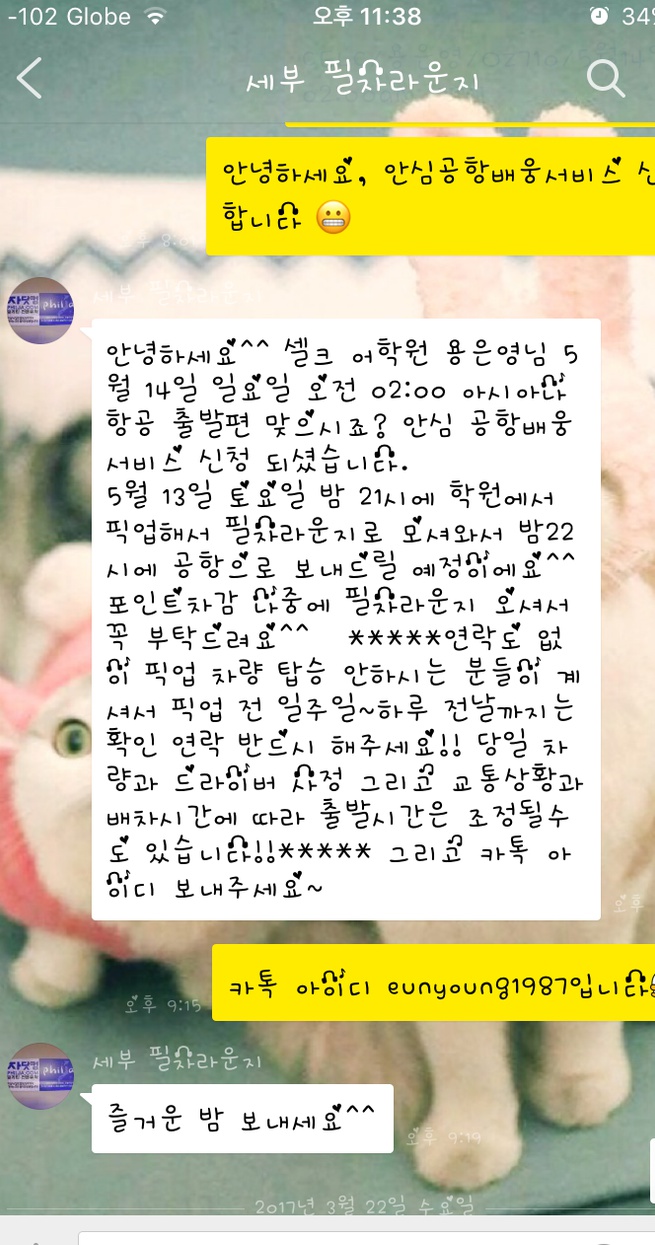 -102 Globe 오후 11:38 34%
세부 필자라운지
안녕하세요, 안심공항배웅서비스 신
합니다 😬
오후 8:0
세부 필자라운지
안녕하세요^^ 셀크 어학원 용은영님 5
월 14일 일요일 오전 02:00 아시아나
항공 출발편 맞으시죠? 안심 공항배웅
서비스 신청 되셨습니다.
5월 13일 토요일 밤 21시에 학원에서
픽업해서 필자라운지로 모셔와서 밤22
시에 공항으로 보내드릴 예정이에요^^
포인트차감 나중에 필자라운지 오셔서
꼭 부탁드려요^^ *****연락도 없
이 픽업 차량 탑승 안하시는 분들이 계
셔서 픽업 전 일주일~하루 전날까지는
확인 연락 반드시 해주세요!! 당일 차
량과 드라이버 사정 그리고 교통상황과
배차시간에 따라 출발시간은 조정될수
도 있습니다!!***** 그리고 카톡 아
이디 보내주세요~
오후
카톡 아이디 eunyoung1987입니다
오후 9:15
세부 필자라운지
즐거운 밤 보내세요^^
오후 9:19
2017년 3월 22일 수요일